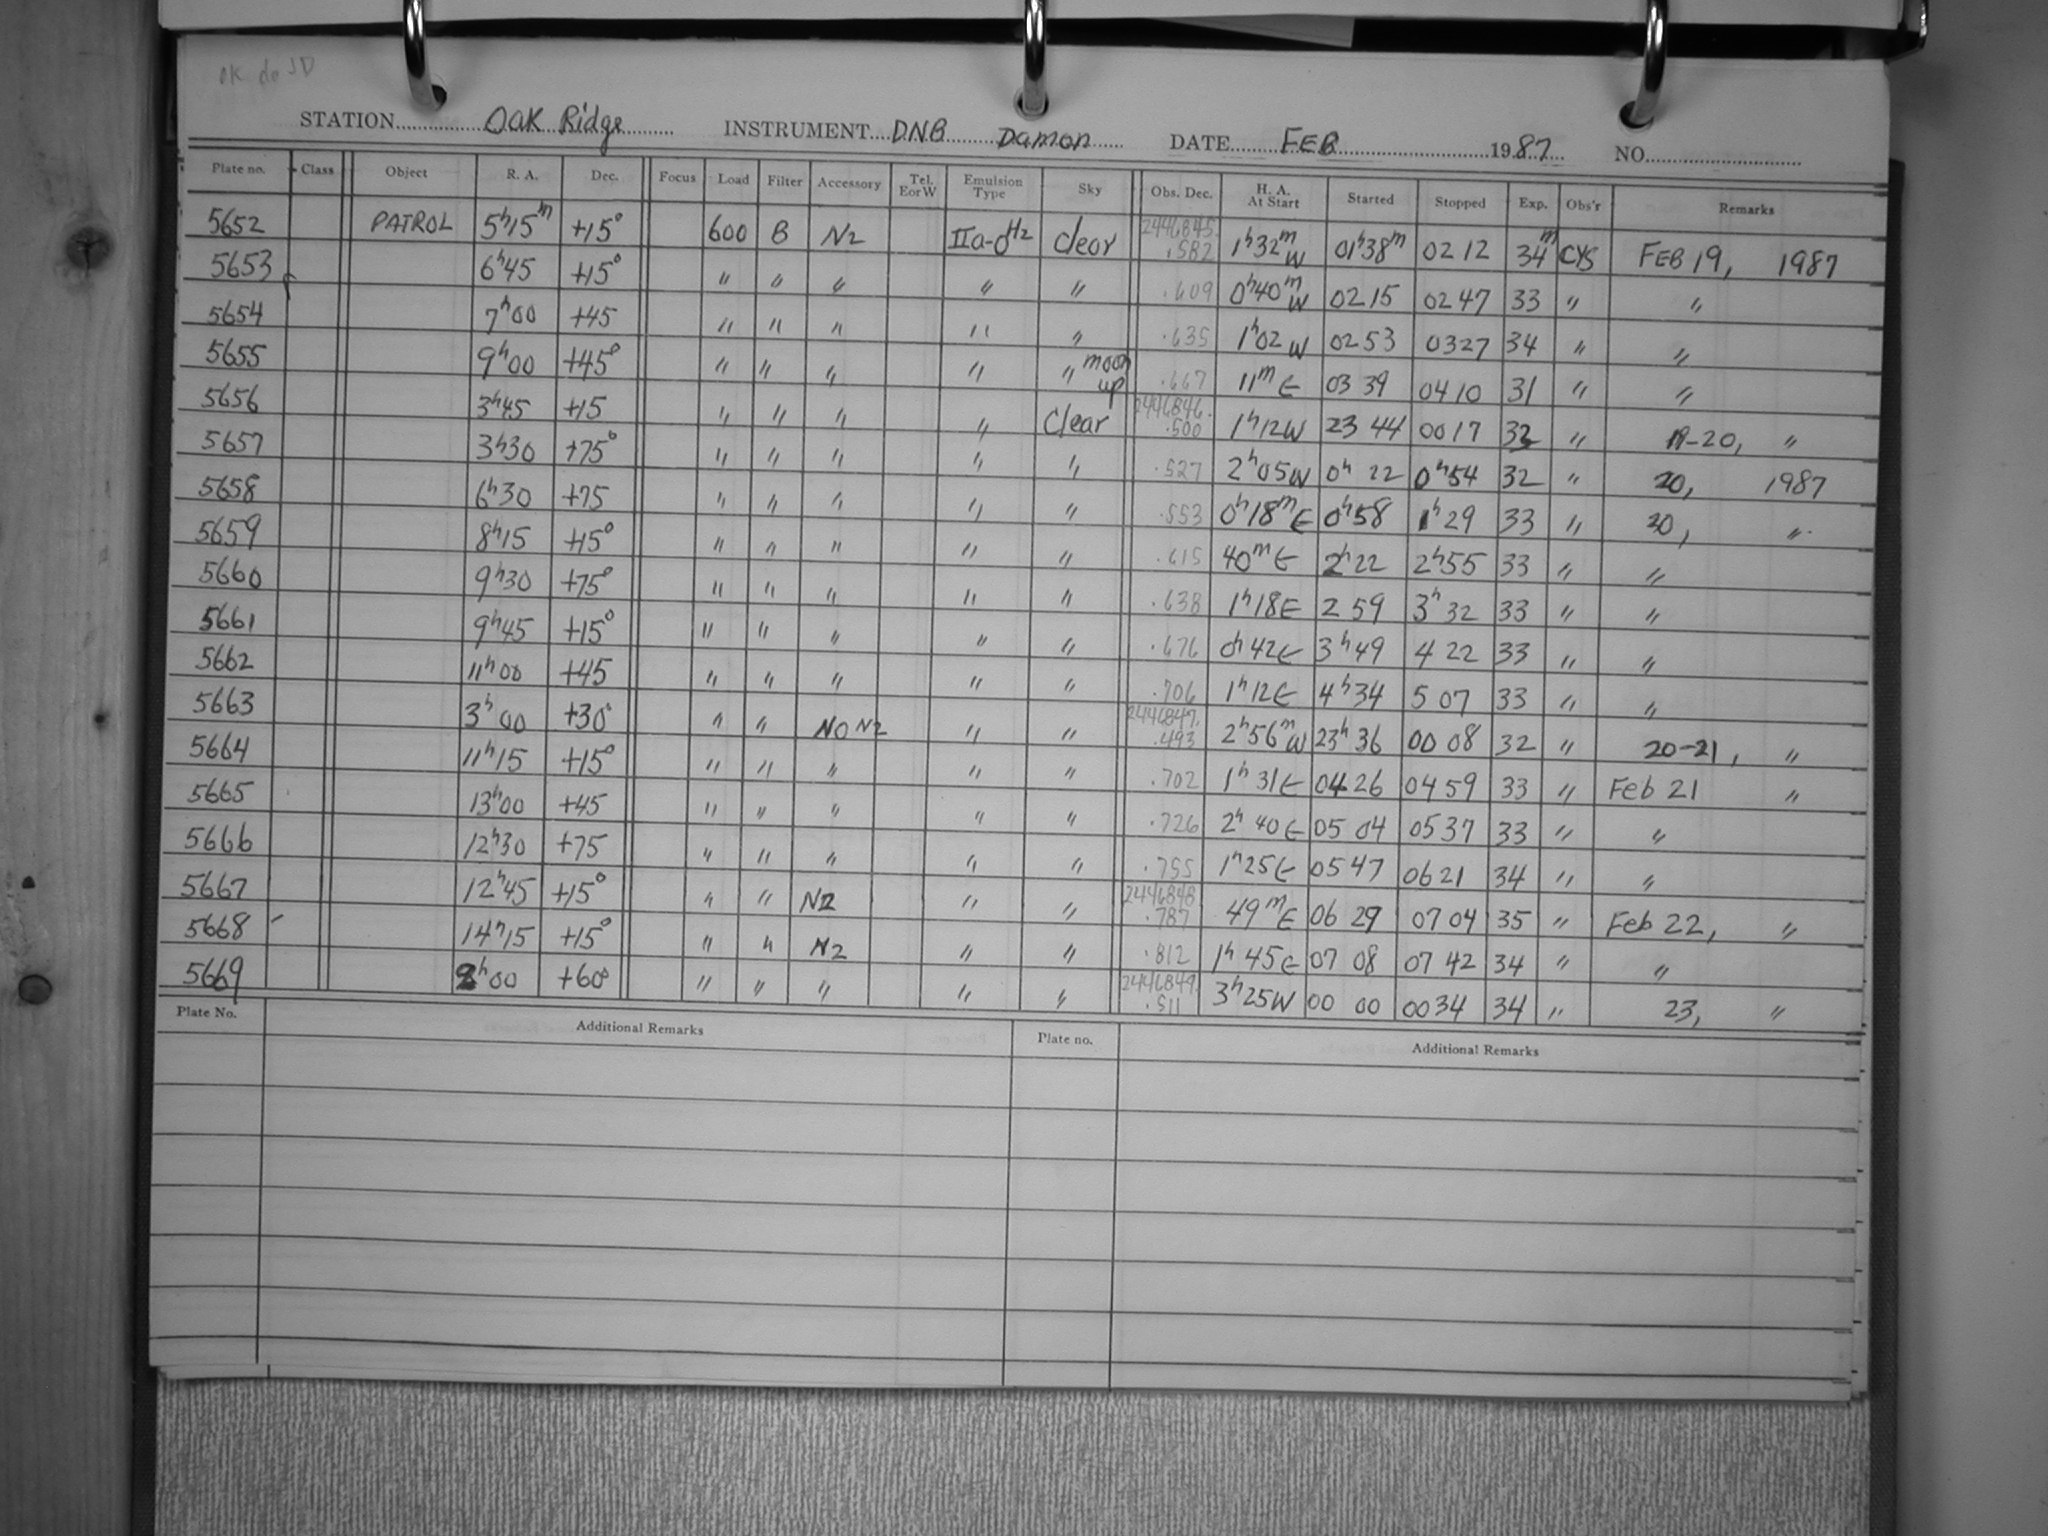 OK do JD
STATION Oak Ridge INSTRUMENT DNB Damon DATE FEB 1987 NO.
Plate no. Class Object R. A. Dec. Focus Load Filter Accessory Tel. E or W Emulsion Type Sky Obs. Dec. H. A. At Start Started Stopped Exp. Obs'r Remarks
5652 PATROL 5h15m +15° 600 B N2 IIa-O H2 Clear 2446845. .582 1h32m W 01h38m 02 12 34m CYS FEB 19, 1987
5653 6h45 +15° " " " " " .609 0h40m W 02 15 02 47 33 " "
5654 7h00 +45 " " " " " .635 1h02 W 02 53 03 27 34 " "
5655 9h00 +45° " " " " " moon up .667 11m E 03 39 04 10 31 " "
5656 3h45 +15 " " " " Clear 2446846. .500 1h12 W 23 44 00 17 33 " 19-20, "
5657 3h30 +75° " " " " " .527 2h05 W 0h 22 0h54 32 " 20, 1987
5658 6h30 +75 " " " " " .553 0h18m E 0h58 1h29 33 " 20, "
5659 8h15 +15° " " " " " .615 40m E 2h22 2h55 33 " "
5660 9h30 +75° " " " " " .638 1h18 E 2 59 3h 32 33 " "
5661 9h45 +15° " " " " " .676 0h42 E 3h49 4 22 33 " "
5662 11h00 +45 " " " " " .706 1h12 E 4h34 5 07 33 " "
5663 3h00 +30° " " NO N2 " " 2446847. .493 2h56m W 23h36 00 08 32 " 20-21, "
5664 11h15 +15° " " " " " .702 1h31 E 04 26 04 59 33 " Feb 21 "
5665 13h00 +45 " " " " " .726 2h 40 E 05 04 05 37 33 " "
5666 12h30 +75 " " " " " .755 1h25 E 05 47 06 21 34 " "
5667 12h45 +15° " " N2 " " 2446848 .787 49m E 06 29 07 04 35 " Feb 22, "
5668 14h15 +15° " " N2 " " .812 1h 45 E 07 08 07 42 34 " "
5669 2h00 +60° " " " " " 2446849. .511 3h25 W 00 00 00 34 34 " 23, "
Plate No. Additional Remarks Plate no. Additional Remarks